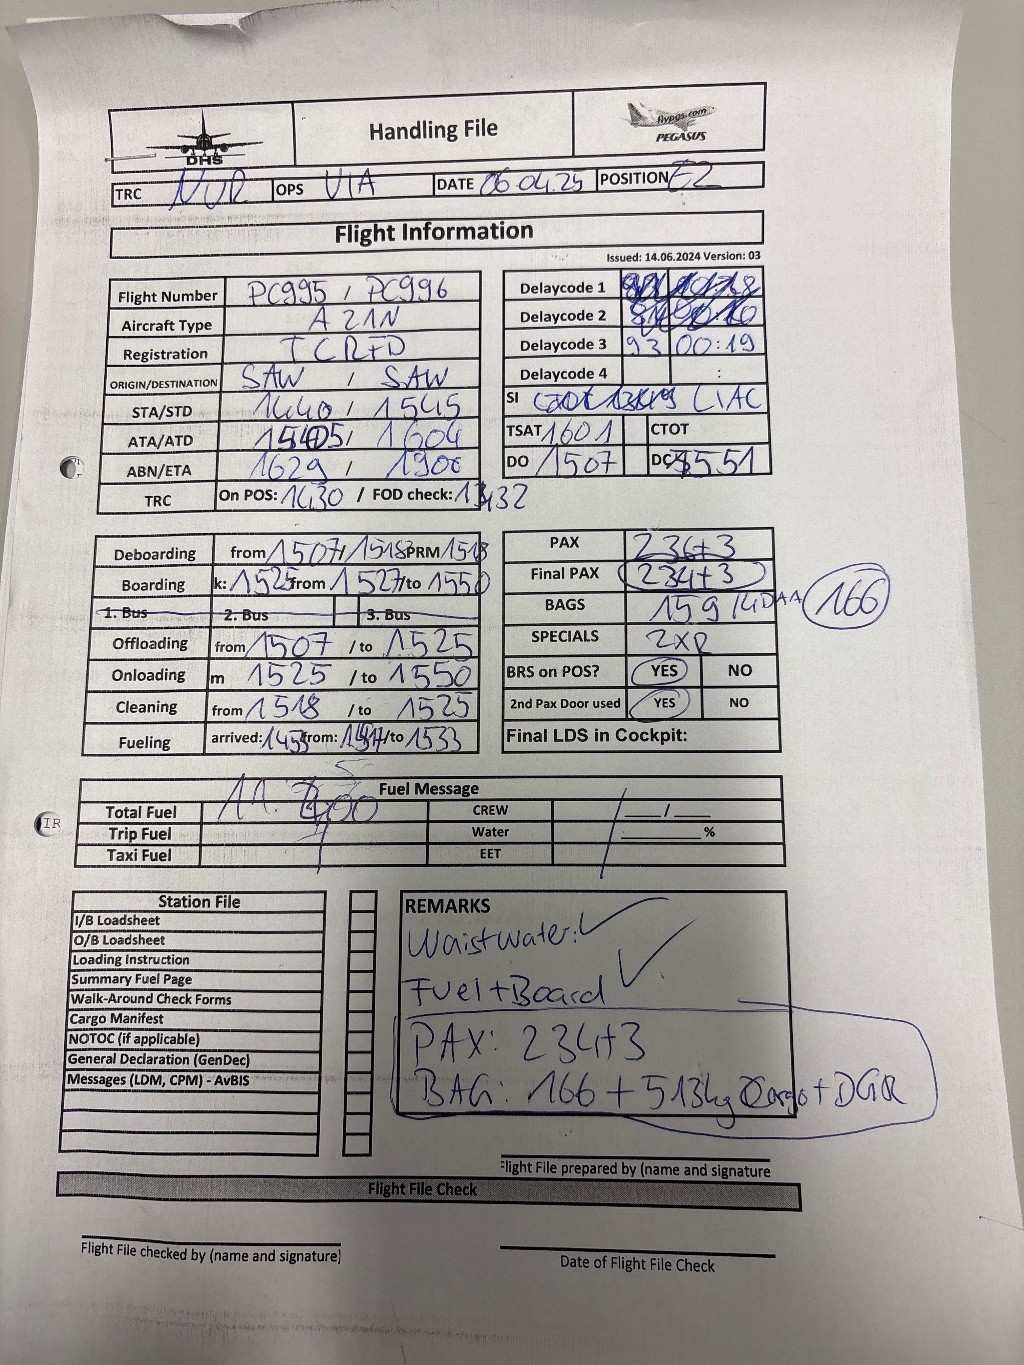 DHS
Handling File
flypgs.com
PEGASUS
TRC NUR OPS VIA DATE 06.04.25 POSITION E2
Flight Information
Issued: 14.06.2024 Version: 03
Flight Number PC995 / PC996
Aircraft Type A21N
Registration
ORIGIN/DESTINATION SAW / SAW
STA/STD 1440 / 1545
ATA/ATD / 1604
ABN/ETA 1629 / 1900
TRC On POS: 1430 / FOD check:
Delaycode 1
Delaycode 2
Delaycode 3 93 00:19
Delaycode 4 :
SI LIAC
TSAT 1601 CTOT
DO 1507 DC 1551
Deboarding from 1507 / 1518 PRM 1518
Boarding k: 1525 from 1527 /to 1550
1. Bus 2. Bus 3. Bus
Offloading from 1507 /to 1525
Onloading m 1525 /to 1550
Cleaning from 1518 /to 1525
Fueling arrived: from: /to 1533
PAX 236+3
Final PAX 234+3
BAGS 159 166
SPECIALS
BRS on POS? YES NO
2nd Pax Door used YES NO
Final LDS in Cockpit:
Fuel Message
Total Fuel CREW ___/___
Trip Fuel Water ________%
Taxi Fuel EET
Station File
I/B Loadsheet
O/B Loadsheet
Loading Instruction
Summary Fuel Page
Walk-Around Check Forms
Cargo Manifest
NOTOC (if applicable)
General Declaration (GenDec)
Messages (LDM, CPM) - AvBIS
REMARKS
Waistwater: ✓
Fuel+Board ✓
PAX: 234+3
BAG: 166 + 513kg Cargo + DGR
Flight File prepared by (name and signature
Flight File Check
Flight File checked by (name and signature)
Date of Flight File Check
IR